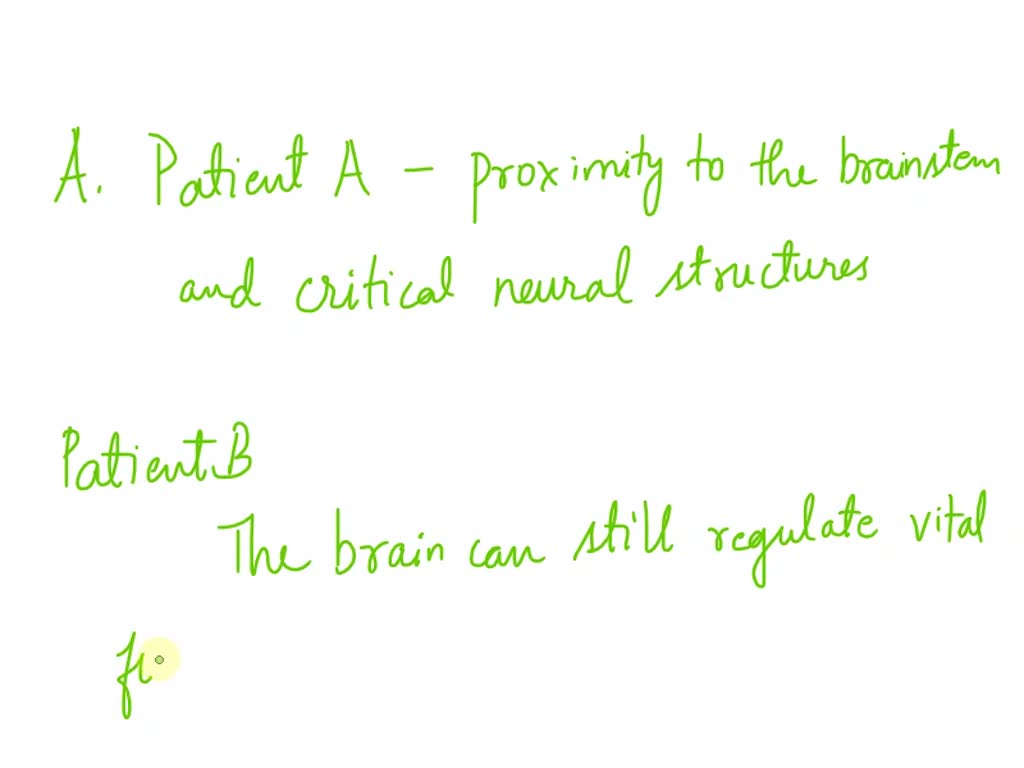 A. Patient A - proximity to the brainstem
and critical neural structures
Patient B
The brain can still regulate vital
fu